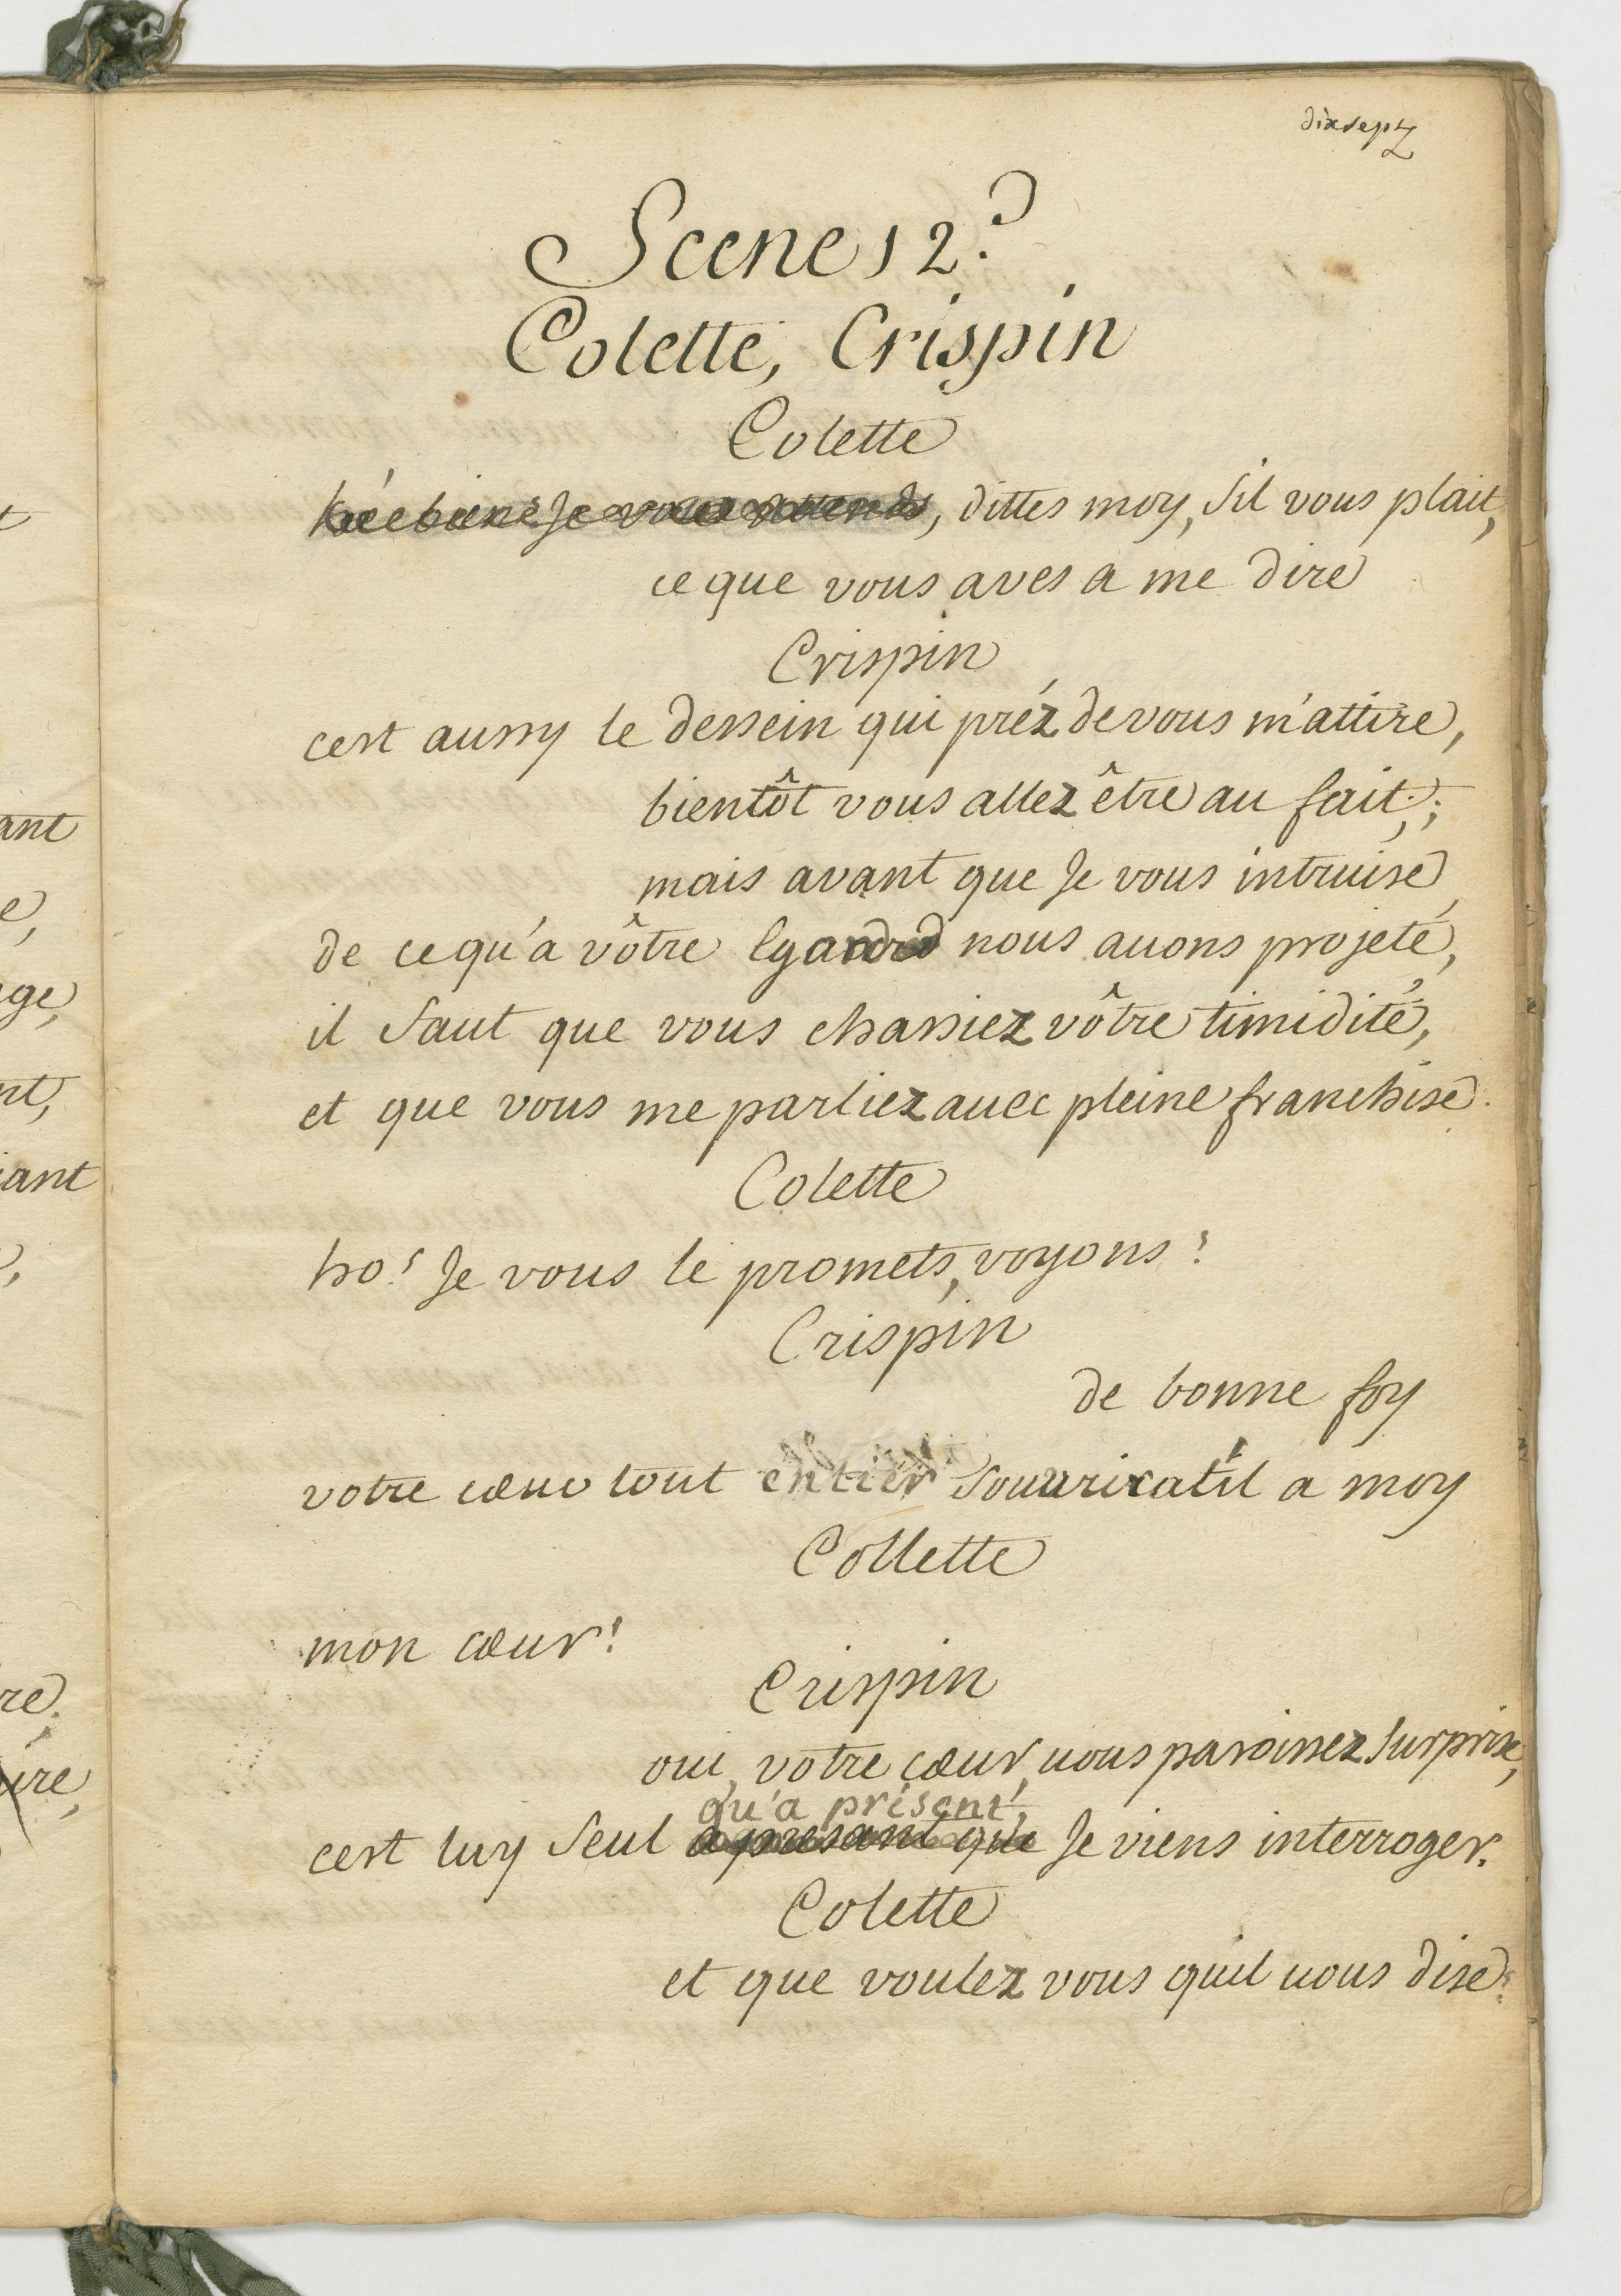 dixsept
Scene 12e
Colette, Crispin
Colette
hé bien! Je vous attends, dittes moy, s'il vous plait,
ce que vous aves a me dire
Crispin
cest aussy le dessein qui préz de vous m'attire,
bientôt vous allez être au fait;
mais avant que Je vous intruise
de ce qu'a vôtre Egard nous auons projeté,
il faut que vous chassiez vôtre timidité,
et que vous me parliez auec pleine franchise.
Colette
ho! Je vous le promets, voyons!
Crispin
de bonne foy
votre cœur tout entier s'ouurirat'il a moy
Collette
mon cœur!
Crispin
oui, votre cœur, uous paroissez surprise,
qu'a présent,
cest luy seul a presant que Je viens interroger.
Colette
et que voulez vous qu'il uous dise?
ant
e,
ge,
nt,
iant
re.
ire,